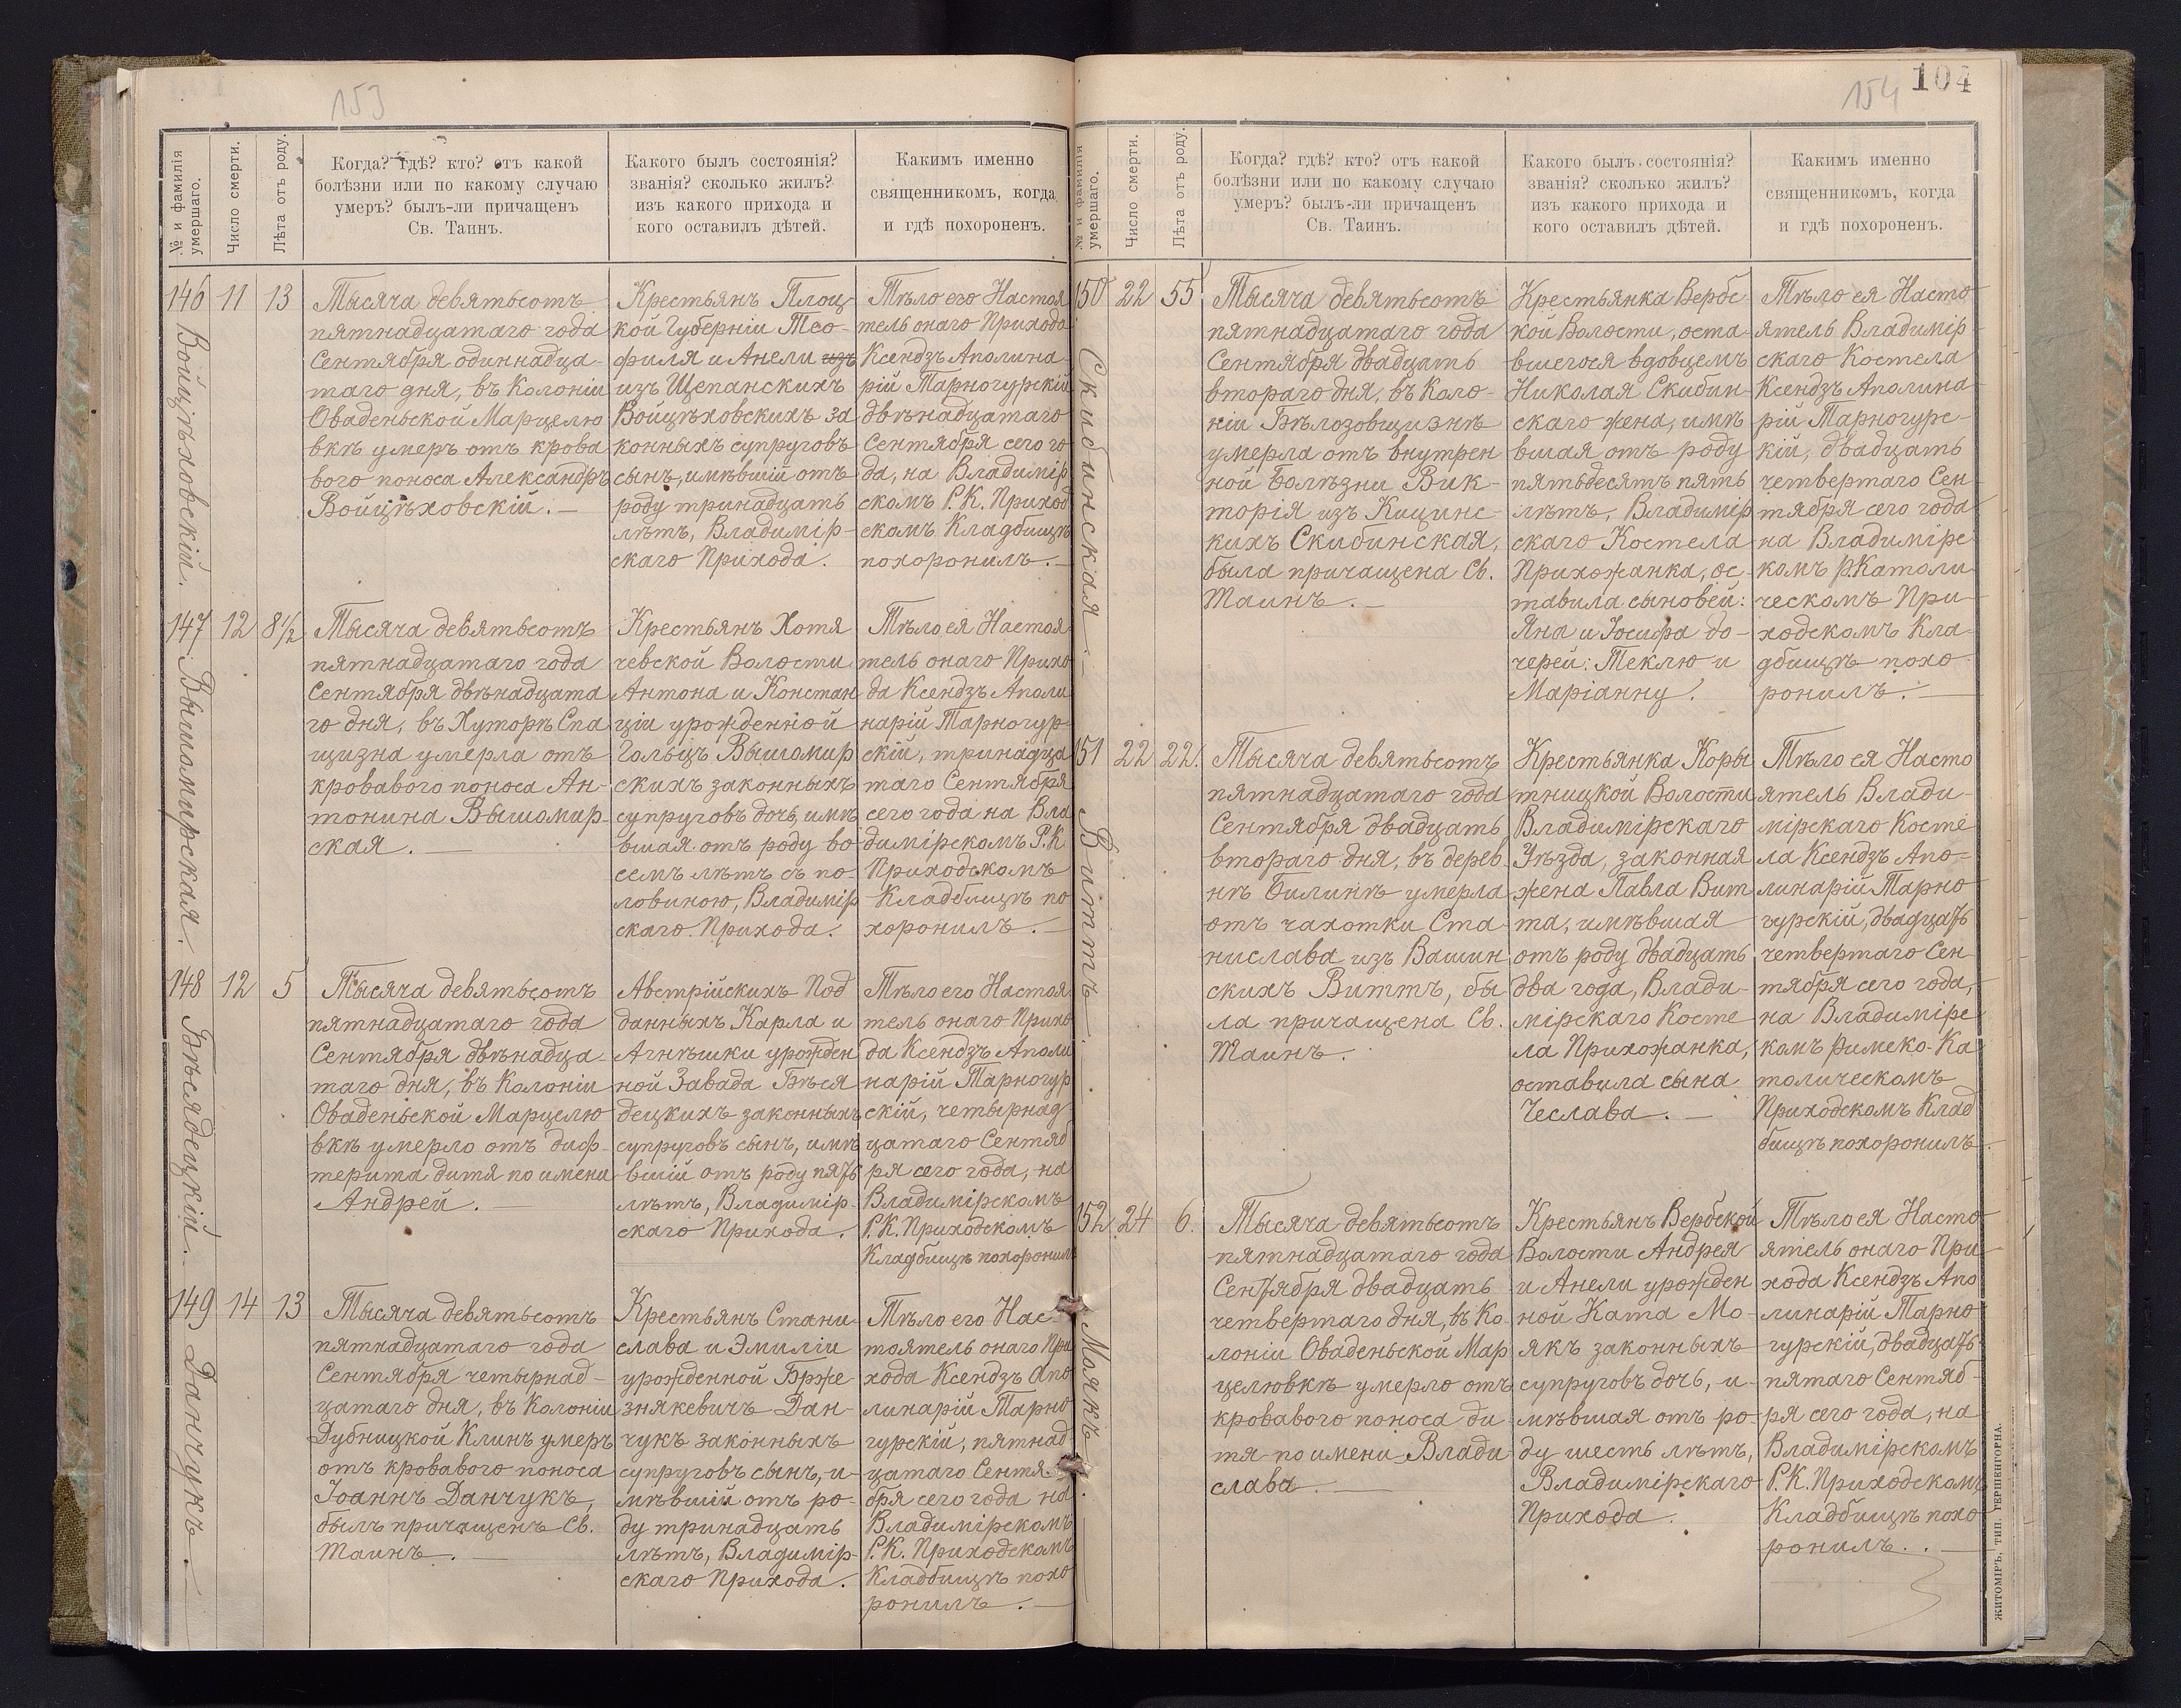 153
№ и фамилія
умершаго.
Число смерти.
Лѣта отъ роду.
Когда? гдѣ? кто? отъ какой
болѣзни или по какому случаю
умеръ? былъ-ли причащенъ
Св. Таинъ.
Какого былъ состоянія?
званія? сколько жилъ?
изъ какого прихода и
кого оставилъ дѣтей.
Какимъ именно
священникомъ, когда
и гдѣ похороненъ.
146
Войцѣховскій.
11
13
Тысяча девятьсотъ
пятнадцатаго года
Сентября одиннадца-
таго дня, въ Колоніи
Оваденьской Марцелю
вкѣ умеръ отъ крова
вого поноса Александръ
Войцѣховскій.—
Крестьянъ Плоц-
кой Губерніи Тео-
филя и Анели изъ
изъ Щепанскихъ
Войцѣховскихъ за
конныхъ супруговъ
сынъ, имѣвшій отъ
роду тринадцать
лѣтъ, Владимір-
скаго Прихода.
Тѣло его Настоя
тель онаго Прихода
Ксендзъ Аполина-
рій Тарногурскій
двѣнадцатаго
Сентября сего го
да, на Владимір
скомъ Р.К. Приход
скомъ Кладбищѣ
похоронилъ.—
147
Вышомирская.
12
8 1/2
Тысяча девятьсотъ
пятнадцатаго года
Сентября двѣнадцата
го дня, въ Хуторѣ Спа
щизна умерла отъ
кроваваго поноса Ан-
тонина Вышомир-
ская.—
Крестьянъ Хотя
чевской Волости
Антона и Констан
ціи урожденной
Гольцъ Вышомир
скихъ законныхъ
супруговъ дочь, имѣ
вшая отъ роду во
семъ лѣтъ съ по-
ловиною, Владимір
скаго Прихода.
Тѣло ея Настоя
тель онаго Прихо
да Ксендзъ Аполи
нарій Тарногур-
скій, тринадца
таго Сентября
сего года на Вла
димірскомъ Р.К.
Приходскомъ
Кладбищѣ по
хоронилъ.—
148
Бѣсядецкій.
12
5
Тысяча девятьсотъ
пятнадцатаго года
Сентября двѣнадца
таго дня, въ Колоніи
Оваденьской Марцелю
вкѣ умерло отъ диф-
терита дитя по имени
Андрей.—
Австрійскихъ Под
данныхъ Карла и
Агнѣшки урожден
ной Завада Бѣся
децкихъ законныхъ
супруговъ сынъ, имѣ
вшій отъ роду пять
лѣтъ, Владимір-
скаго Прихода.
Тѣло его Настоя
тель онаго Прихо
да Ксендзъ Аполи
нарій Тарногур
скій, четырнад
цатаго Сентяб
ря сего года, на
Владимірскомъ
Р.К. Приходскомъ
Кладбищѣ похоронилъ
149
Данчукъ.—
14
13
Тысяча девятьсотъ
пятнадцатаго года
Сентября четырнад-
цатаго дня, въ Колоніи
Дубницкой Клинъ умеръ
отъ кроваваго поноса
Іоаннъ Данчукъ,
былъ причащенъ Св.
Таинъ.—
Крестьянъ Стани
слава и Эмиліи
урожденной Брже-
знякевичъ Дан-
чукъ законныхъ
супруговъ сынъ, и-
мѣвшій отъ ро-
ду тринадцать
лѣтъ, Владимір-
скаго Прихода.
Тѣло его Нас-
тоятель онаго При
хода Ксендзъ Апо
линарій Тарно
гурскій, пятнад
цатаго Сентя-
бря сего года на
Владимірскомъ
Р.К. Приходскомъ
Кладбищѣ похо
ронилъ.—
154
104
№ и фамилія
умершаго.
Число смерти.
Лѣта отъ роду.
Когда? гдѣ? кто? отъ какой
болѣзни или по какому случаю
умеръ? былъ-ли причащенъ
Св. Таинъ.
Какого былъ состоянія?
званія? сколько жилъ?
изъ какого прихода и
кого оставилъ дѣтей.
Какимъ именно
священникомъ, когда
и гдѣ похороненъ.
150
Скибинская.—
22
55
Тысяча девятьсотъ
пятнадцатаго года
Сентября двадцать
втораго дня, въ Коло-
ніи Бѣлозовщизнѣ
умерла отъ внутрен
ной болѣзни Вик-
торія изъ Кицинс-
кихъ Скибинская,
была причащена Св.
Таинъ.—
Крестьянка Вербс-
кой Волости, оста-
вшегося вдовцемъ
Николая Скибин-
скаго жена, имѣ
вшая отъ роду
пятьдесятъ пять
лѣтъ, Владимір
скаго Костела
Прихожанка, ос-
тавила сыновей:
Яна и Іосифа до-
черей: Теклю и
Маріанну.
Тѣло ея Насто
ятель Владимір
скаго Костела
Ксендзъ Аполина-
рій Тарногурс-
кій, двадцать
четвертаго Сен-
тября сего года
на Владимірс
комъ Р.Католи-
ческомъ При-
ходскомъ Кла-
дбищѣ похо
ронилъ.—
151
Виттъ.
22
22.
Тысяча девятьсотъ
пятнадцатаго года
Сентября двадцать
втораго дня, въ дерев
нѣ Билинѣ умерла
отъ чахотки Ста-
нислава изъ Вашин
скихъ Виттъ, бы
ла причащена Св.
Таинъ.
Крестьянка Коры
тницкой Волости
Владимірскаго
Уѣзда, законная
жена Павла Вит
та, имѣвшая
отъ роду двадцать
два года, Влади-
мірскаго Косте
ла Прихожанка,
оставила сына
Чеслава.—
Тѣло ея Насто
ятель Влади-
мірскаго Косте
ла Ксендзъ Апо-
линарій Тарно
гурскій, двадцать
четвертаго Сен
тября сего года,
на Владимірс
комъ Римско-Ка
толическомъ
Приходскомъ Клад
бищѣ похоронилъ.
152
Моякъ.
24
6.
Тысяча девятьсотъ
пятнадцатаго года
Сентября двадцать
четвертаго дня, въ Ко
лоніи Оваденьской Мар
целювкѣ умерло отъ
кроваваго поноса ди
тя по имени Влади
слава.—
Крестьянъ Вербской
Волости Андрея
и Анели урожден
ной Ката Мо-
якъ законныхъ
супруговъ дочь, и-
мѣвшая отъ ро-
ду шесть лѣтъ,
Владимірскаго
Прихода.
Тѣло ея Насто
ятель онаго При
хода Ксендзъ Апо
линарій Тарно
гурскій, двадцать
пятаго Сентяб-
ря сего года, на
Владимірскомъ
Р.К. Приходскомъ
Кладбищѣ похо
ронилъ.—
ЖИТОМІРЪ, ТИП. ГЕРШЕНГОРНА.